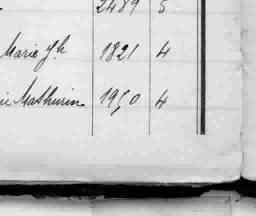 2489 5
Marie Jh 1821 4
ie Mathurin 1950 4